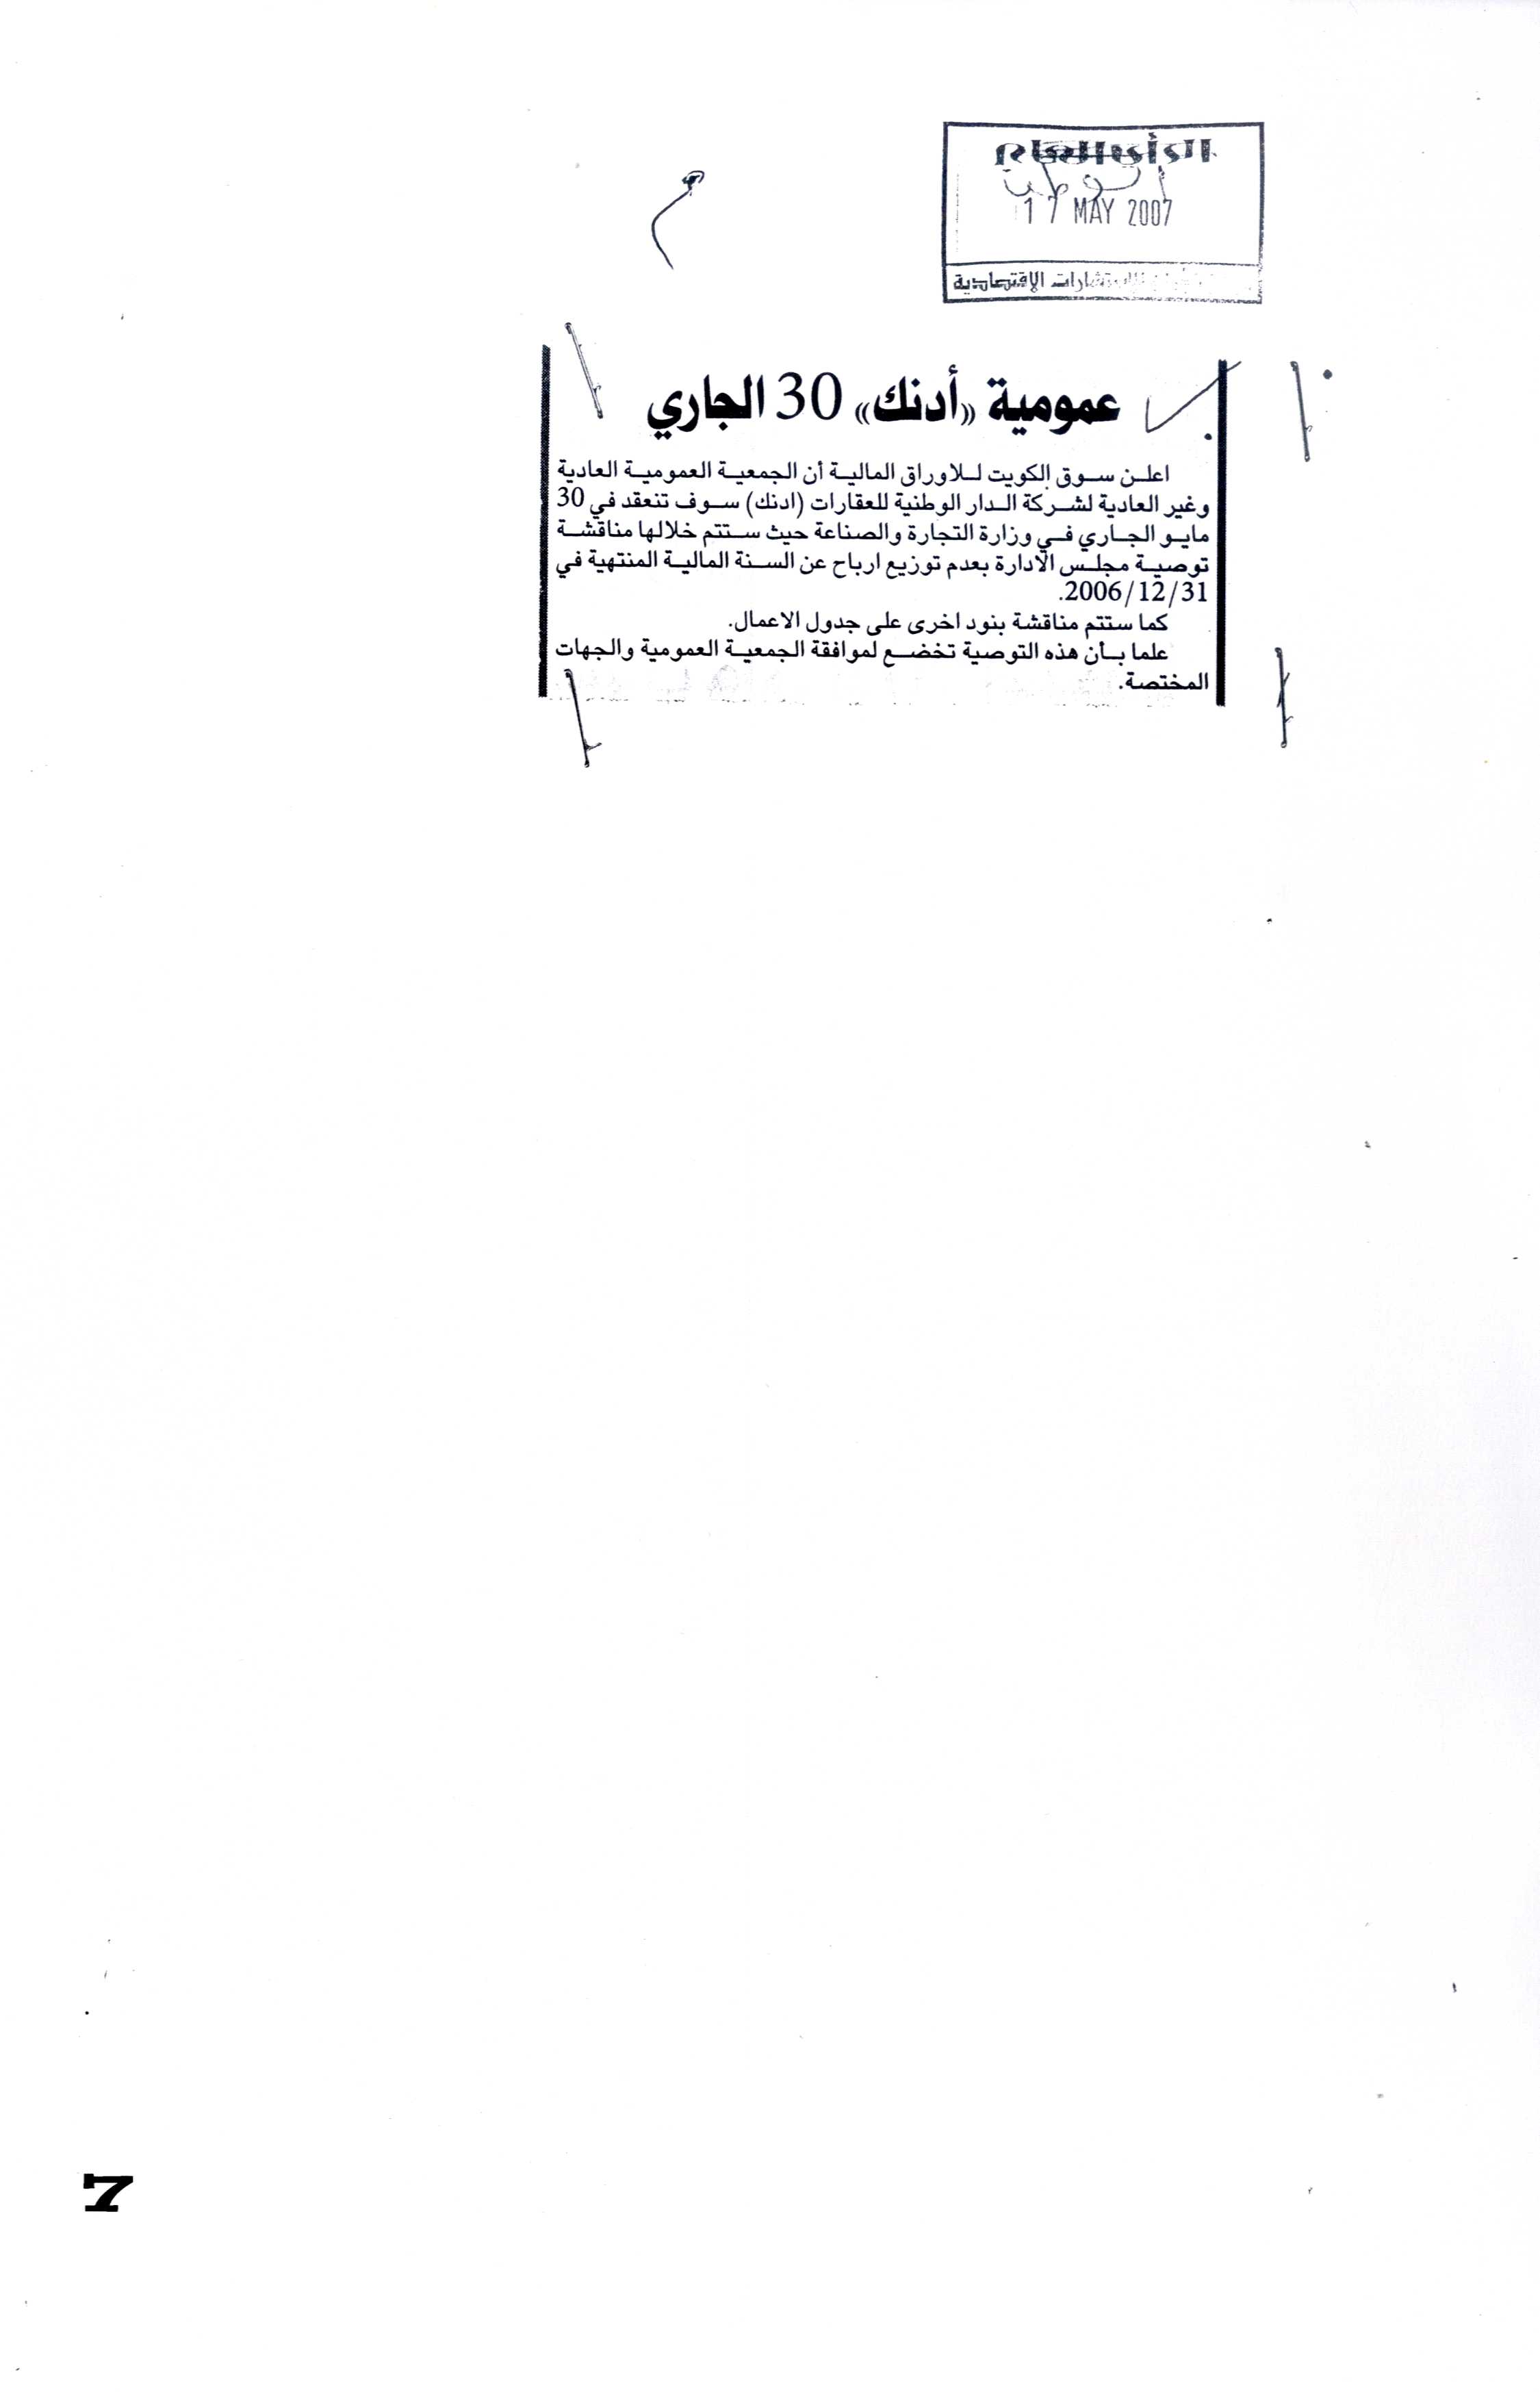 17 MAY 2007
للاستشارات الإقتصادية
عمومية «أدنك» 30 الجاري
اعلن سوق الكويت للاوراق المالية أن الجمعية العمومية العادية
وغير العادية لشركة الدار الوطنية للعقارات (ادنك) سوف تنعقد في 30
مايو الجاري في وزارة التجارة والصناعة حيث ستتم خلالها مناقشة
توصية مجلس الادارة بعدم توزيع ارباح عن السنة المالية المنتهية في
2006/12/31.
كما ستتم مناقشة بنود اخرى على جدول الاعمال.
علما بأن هذه التوصية تخضع لموافقة الجمعية العمومية والجهات
المختصة.
7